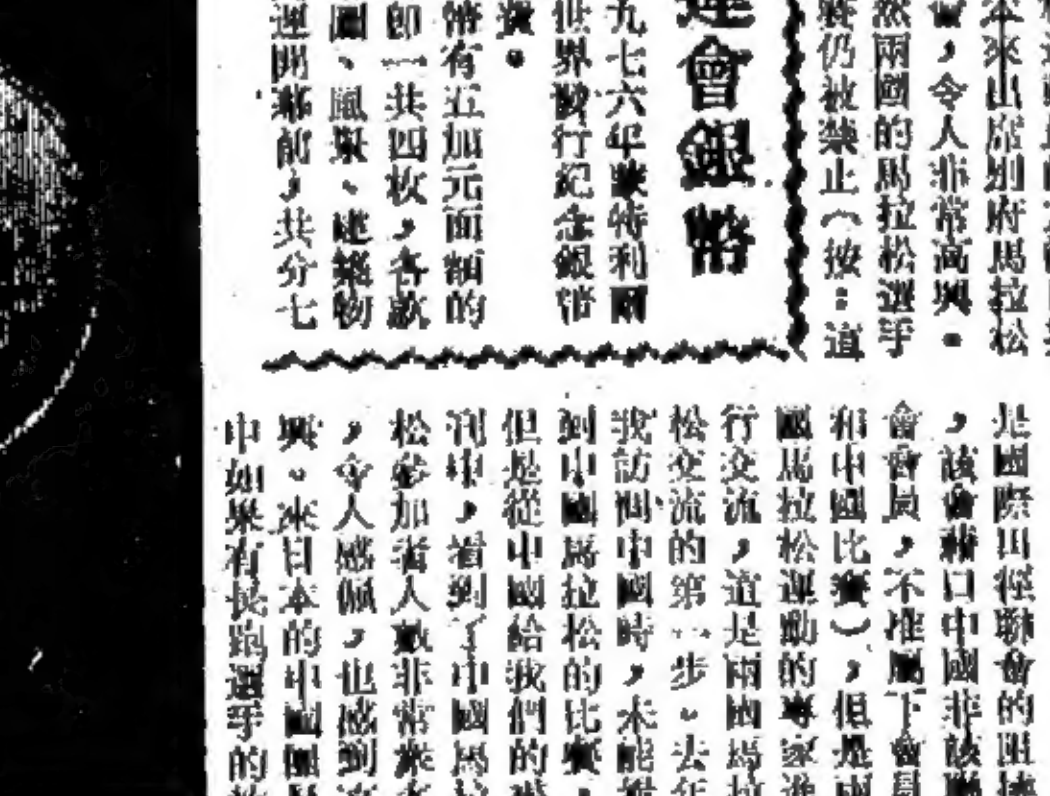 本來出席別府馬拉松
會，令人非常高興。
然兩國的馬拉松選手
賽仍被禁止（按：這
運會銀幣
九七六年蒙特利爾
世界發行紀念銀幣
幣有五加元面額的
一共四枚，各款
建築物
運開幕前，共分七
是國際田徑聯會的阻
，該會藉口中國非該聯
會會員，不准屬下會員
和中國比賽），但是兩
國馬拉松運動的專家進
行交流，這是兩國馬拉
松交流的第一步。去年
我訪問中國時，未能
到中國馬拉松的比賽，
但是從中國給我們的
刊中，看到了中國馬拉
松參加者人數非常衆
，令人感佩，也感到
興。來日本的中國團
中如果有長跑選手的